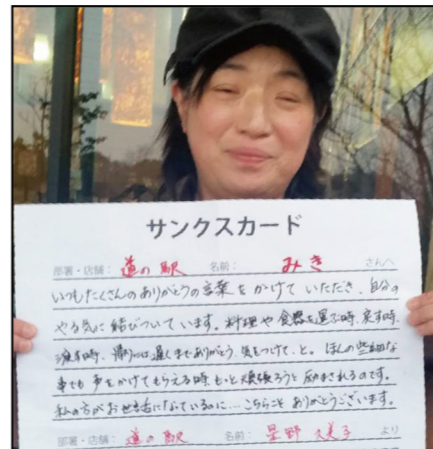 サンクスカード
部署・店舗: 道の駅 名前: みき さんへ
いつもたくさんのありがとうの言葉をかけていただき、自分の
やる気に結びついています。料理や食器を運ぶ時、戻す時、
渡す時、帰りには遅くまでありがとう、気をつけて、と。ほんの些細な
事でも声をかけてもらえる時、もっと頑張ろうと励まされるのです。
私の方がお世話になっているのに…こちらこそありがとうございます。
部署・店舗: 道の駅 名前: 星野 久美子 より